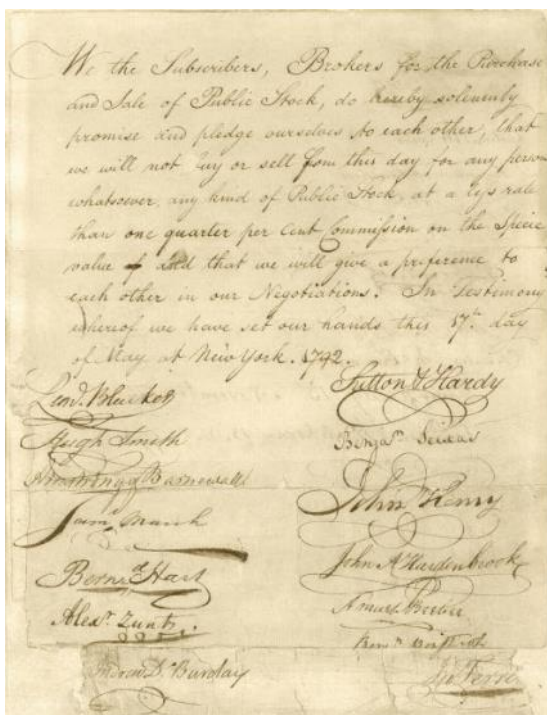 We the Subscribers, Brokers for the Purchase
and Sale of Public Stock, do hereby solemnly
promise and pledge ourselves to each other, that
we will not buy or sell from this day for any person
whatsoever, any kind of Public Stock, at a less rate
than one quarter per cent Commission on the Specie
value of and that we will give a preference to
each other in our Negotiations. In Testimony
whereof we have set our hands this 17th day
of May at New York. 1792.
Leod. Bleecker
Hugh Smith
Armstrong & Barnewall
Saml. March
Bernd. Hart
Alexr. Zuntz.
Andrew D. Barclay
Sutton & Hardy
Benjan. Seixas
John Henry
John A Hardenbrook